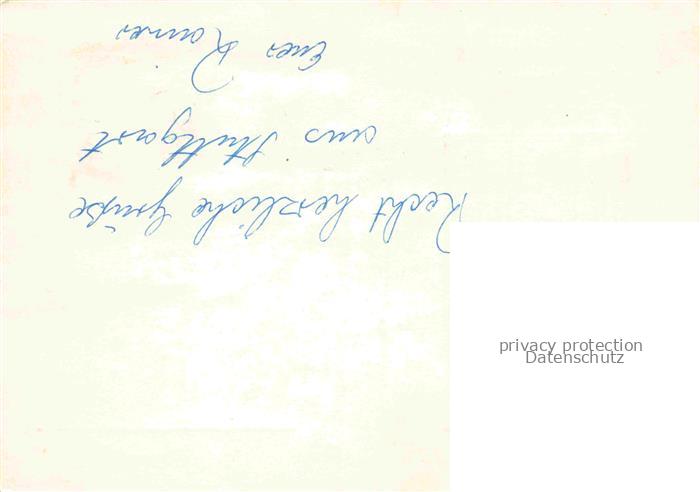 Recht herzliche Grüße
aus Stuttgart
Euer Rainer
privacy protection
Datenschutz